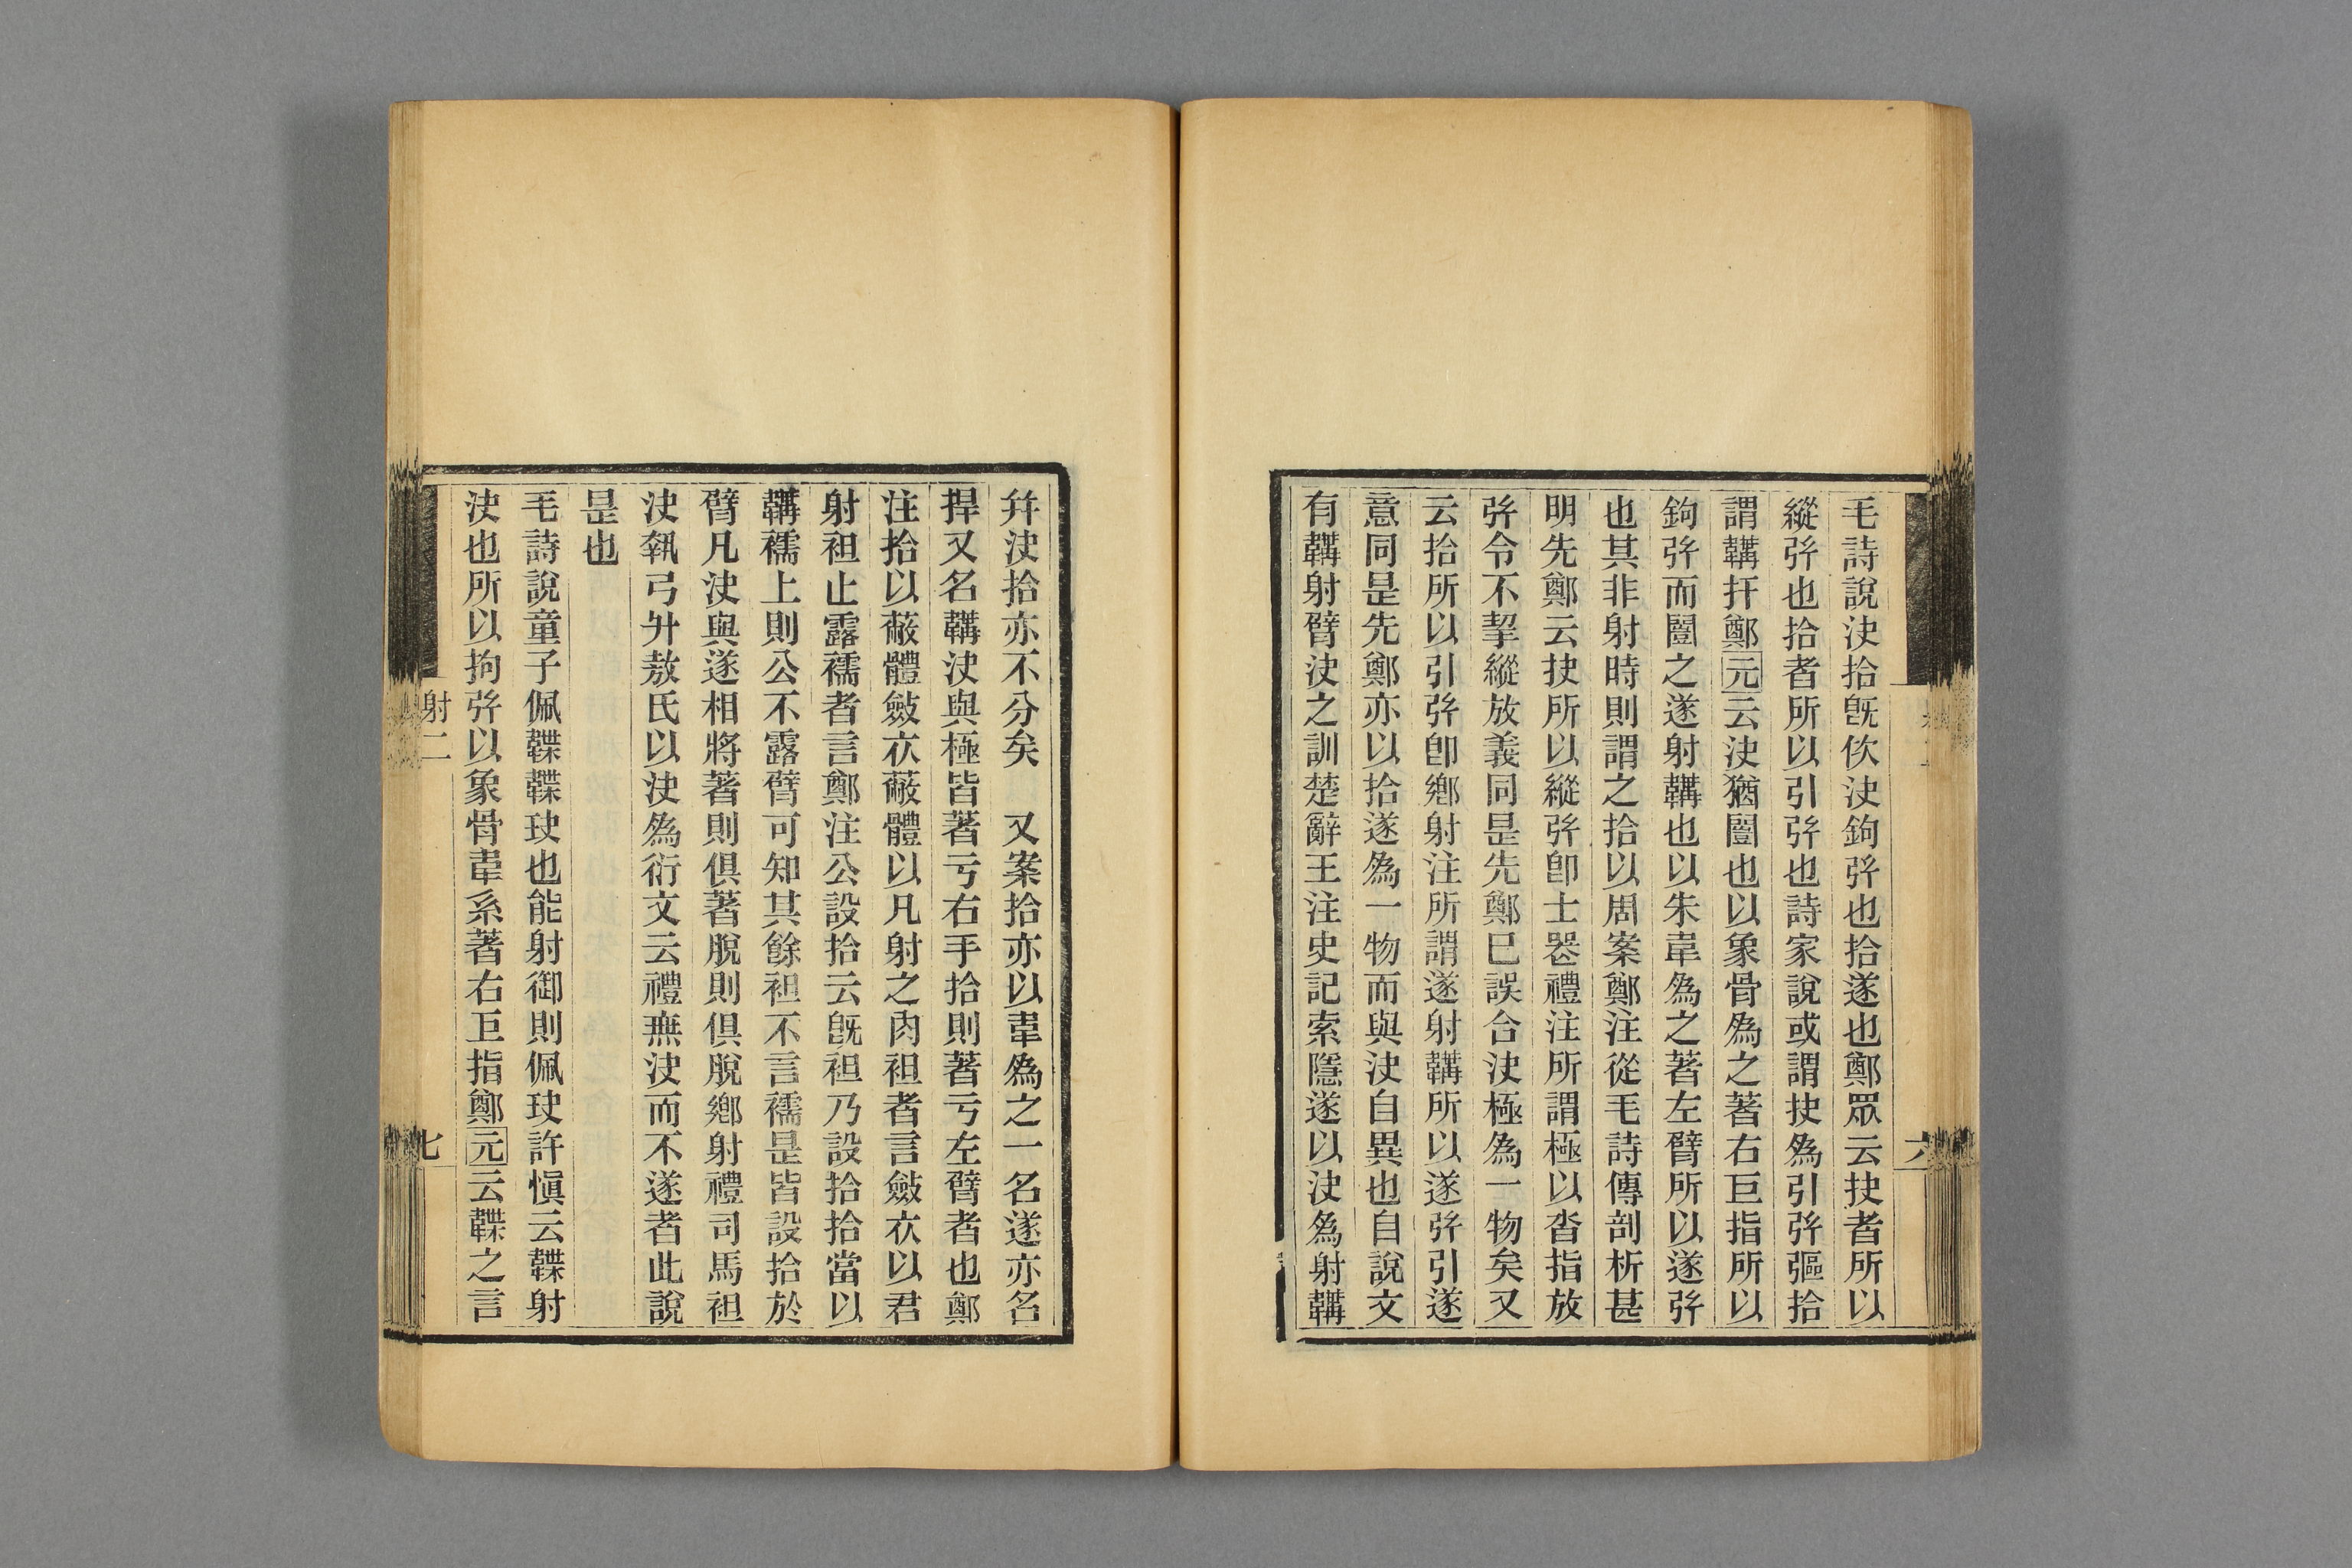 毛詩說決拾旣佽決鉤弦也拾遂也鄭眾云抉者所以
縱弦也拾者所以引弦也詩家說或謂抉爲引弦彄拾
謂韝扞鄭元云決猶闓也以象骨爲之著右巨指所以
鉤弦而闓之遂射韝也以朱韋爲之著左臂所以遂弦
也其非射時則謂之拾以周案鄭注從毛詩傳剖析甚
明先鄭云抉所以縱弦卽士喪禮注所謂極以沓指放
弦令不挈縱放義同是先鄭已誤合決極爲一物矣又
云拾所以引弦卽鄉射注所謂遂射韝所以遂弦引遂
意同是先鄭亦以拾遂爲一物而與決自異也自說文
有韝射臂決之訓楚辭王注史記索隱遂以決爲射韝
六
幷決拾亦不分矣　又案拾亦以韋爲之一名遂亦名
捍又名韝決與極皆著亏右手拾則著亏左臂者也鄭
注拾以蔽體斂衣蔽體以凡射之肉袒者言斂衣以君
射袒止露襦者言鄭注公設拾云旣袒乃設拾拾當以
韝襦上則公不露臂可知其餘袒不言襦是皆設拾於
臂凡決與遂相將著則俱著脫則俱脫鄉射禮司馬袒
決執弓升敖氏以決爲衍文云禮無決而不遂者此說
是也
毛詩說童子佩韘韘玦也能射御則佩玦許愼云韘射
決也所以拘弦以象骨韋系著右巨指鄭元云韘之言
射二
七